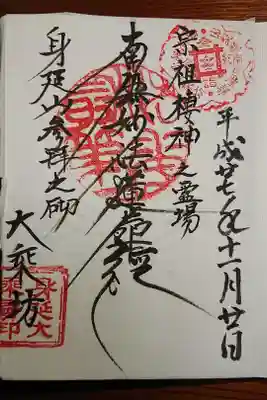 平成廿七年十一月廿日
宗祖棲神之霊場
南無妙法蓮華経
身延山参拝之砌
大乗坊